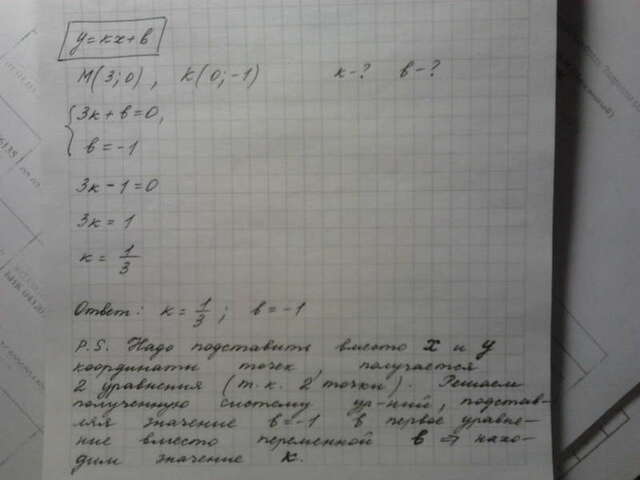 y=kx+b
M(3;0), K(0;-1) k-? b-?
{3k+b=0,
b=-1
3k-1=0
3k=1
k=1/3
Ответ: k=1/3; b=-1
P.S. Надо подставить вместо x и y
координаты точек, получается
2 уравнения (т.к. 2 точки). Решаем
полученную систему ур-ний, подстав-
ляя значение b=-1 в первое уравне-
ние вместо переменной b => нахо-
дим значение k.